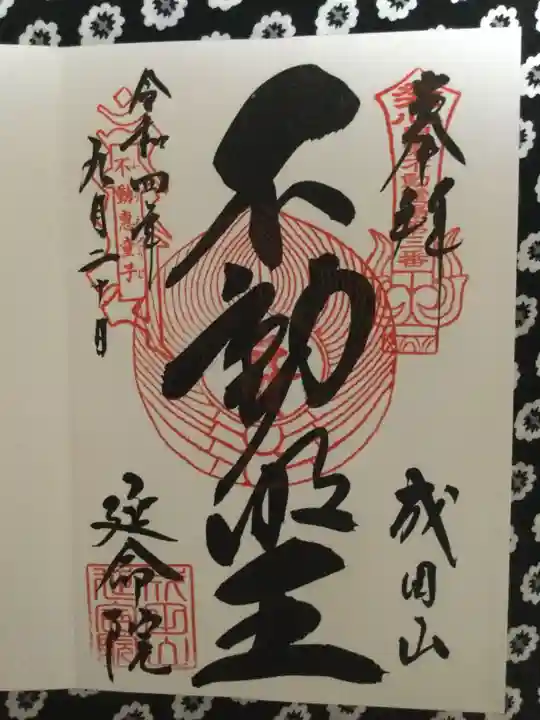 奉拝
成田山
不動明王
令和四年
九月二十日
不動恵童子
延命院